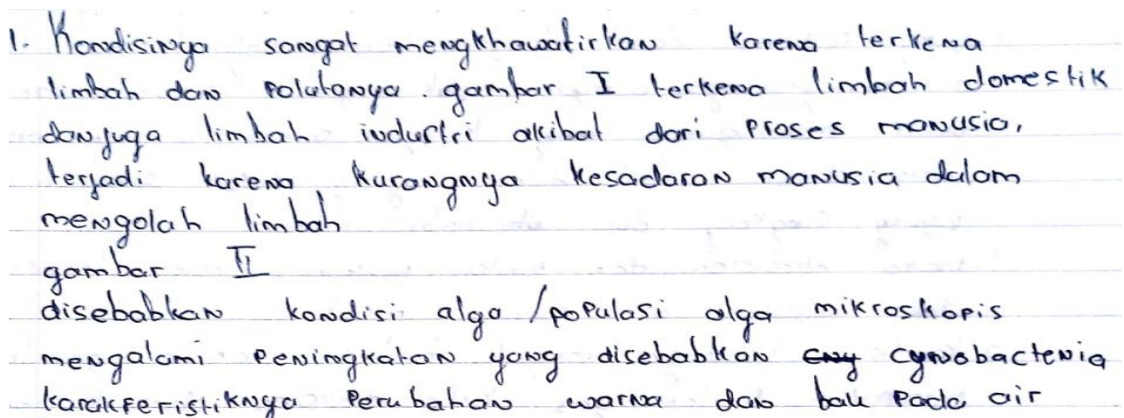 1. Kondisinya sangat mengkhawatirkan karena terkena
limbah dan polutanya. gambar I terkena limbah domestik
dan juga limbah industri akibat dari proses manusia,
terjadi karena kurangnya kesadaran manusia dalam
mengolah limbah
gambar II
disebabkan kondisi alga / populasi alga mikroskopis
mengalami peningkatan yang disebabkan cynobacteria
karakteristiknya perubahan warna dan bau pada air